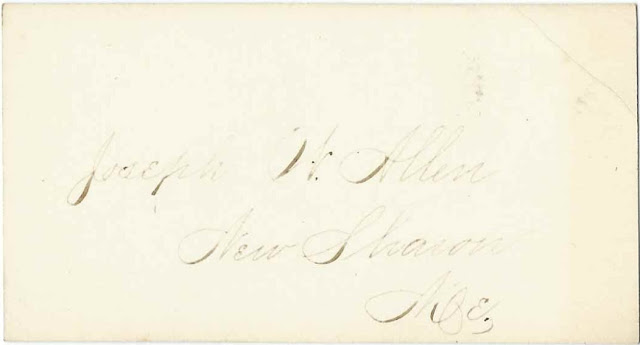 Joseph W. Allen
New Sharon
Me,